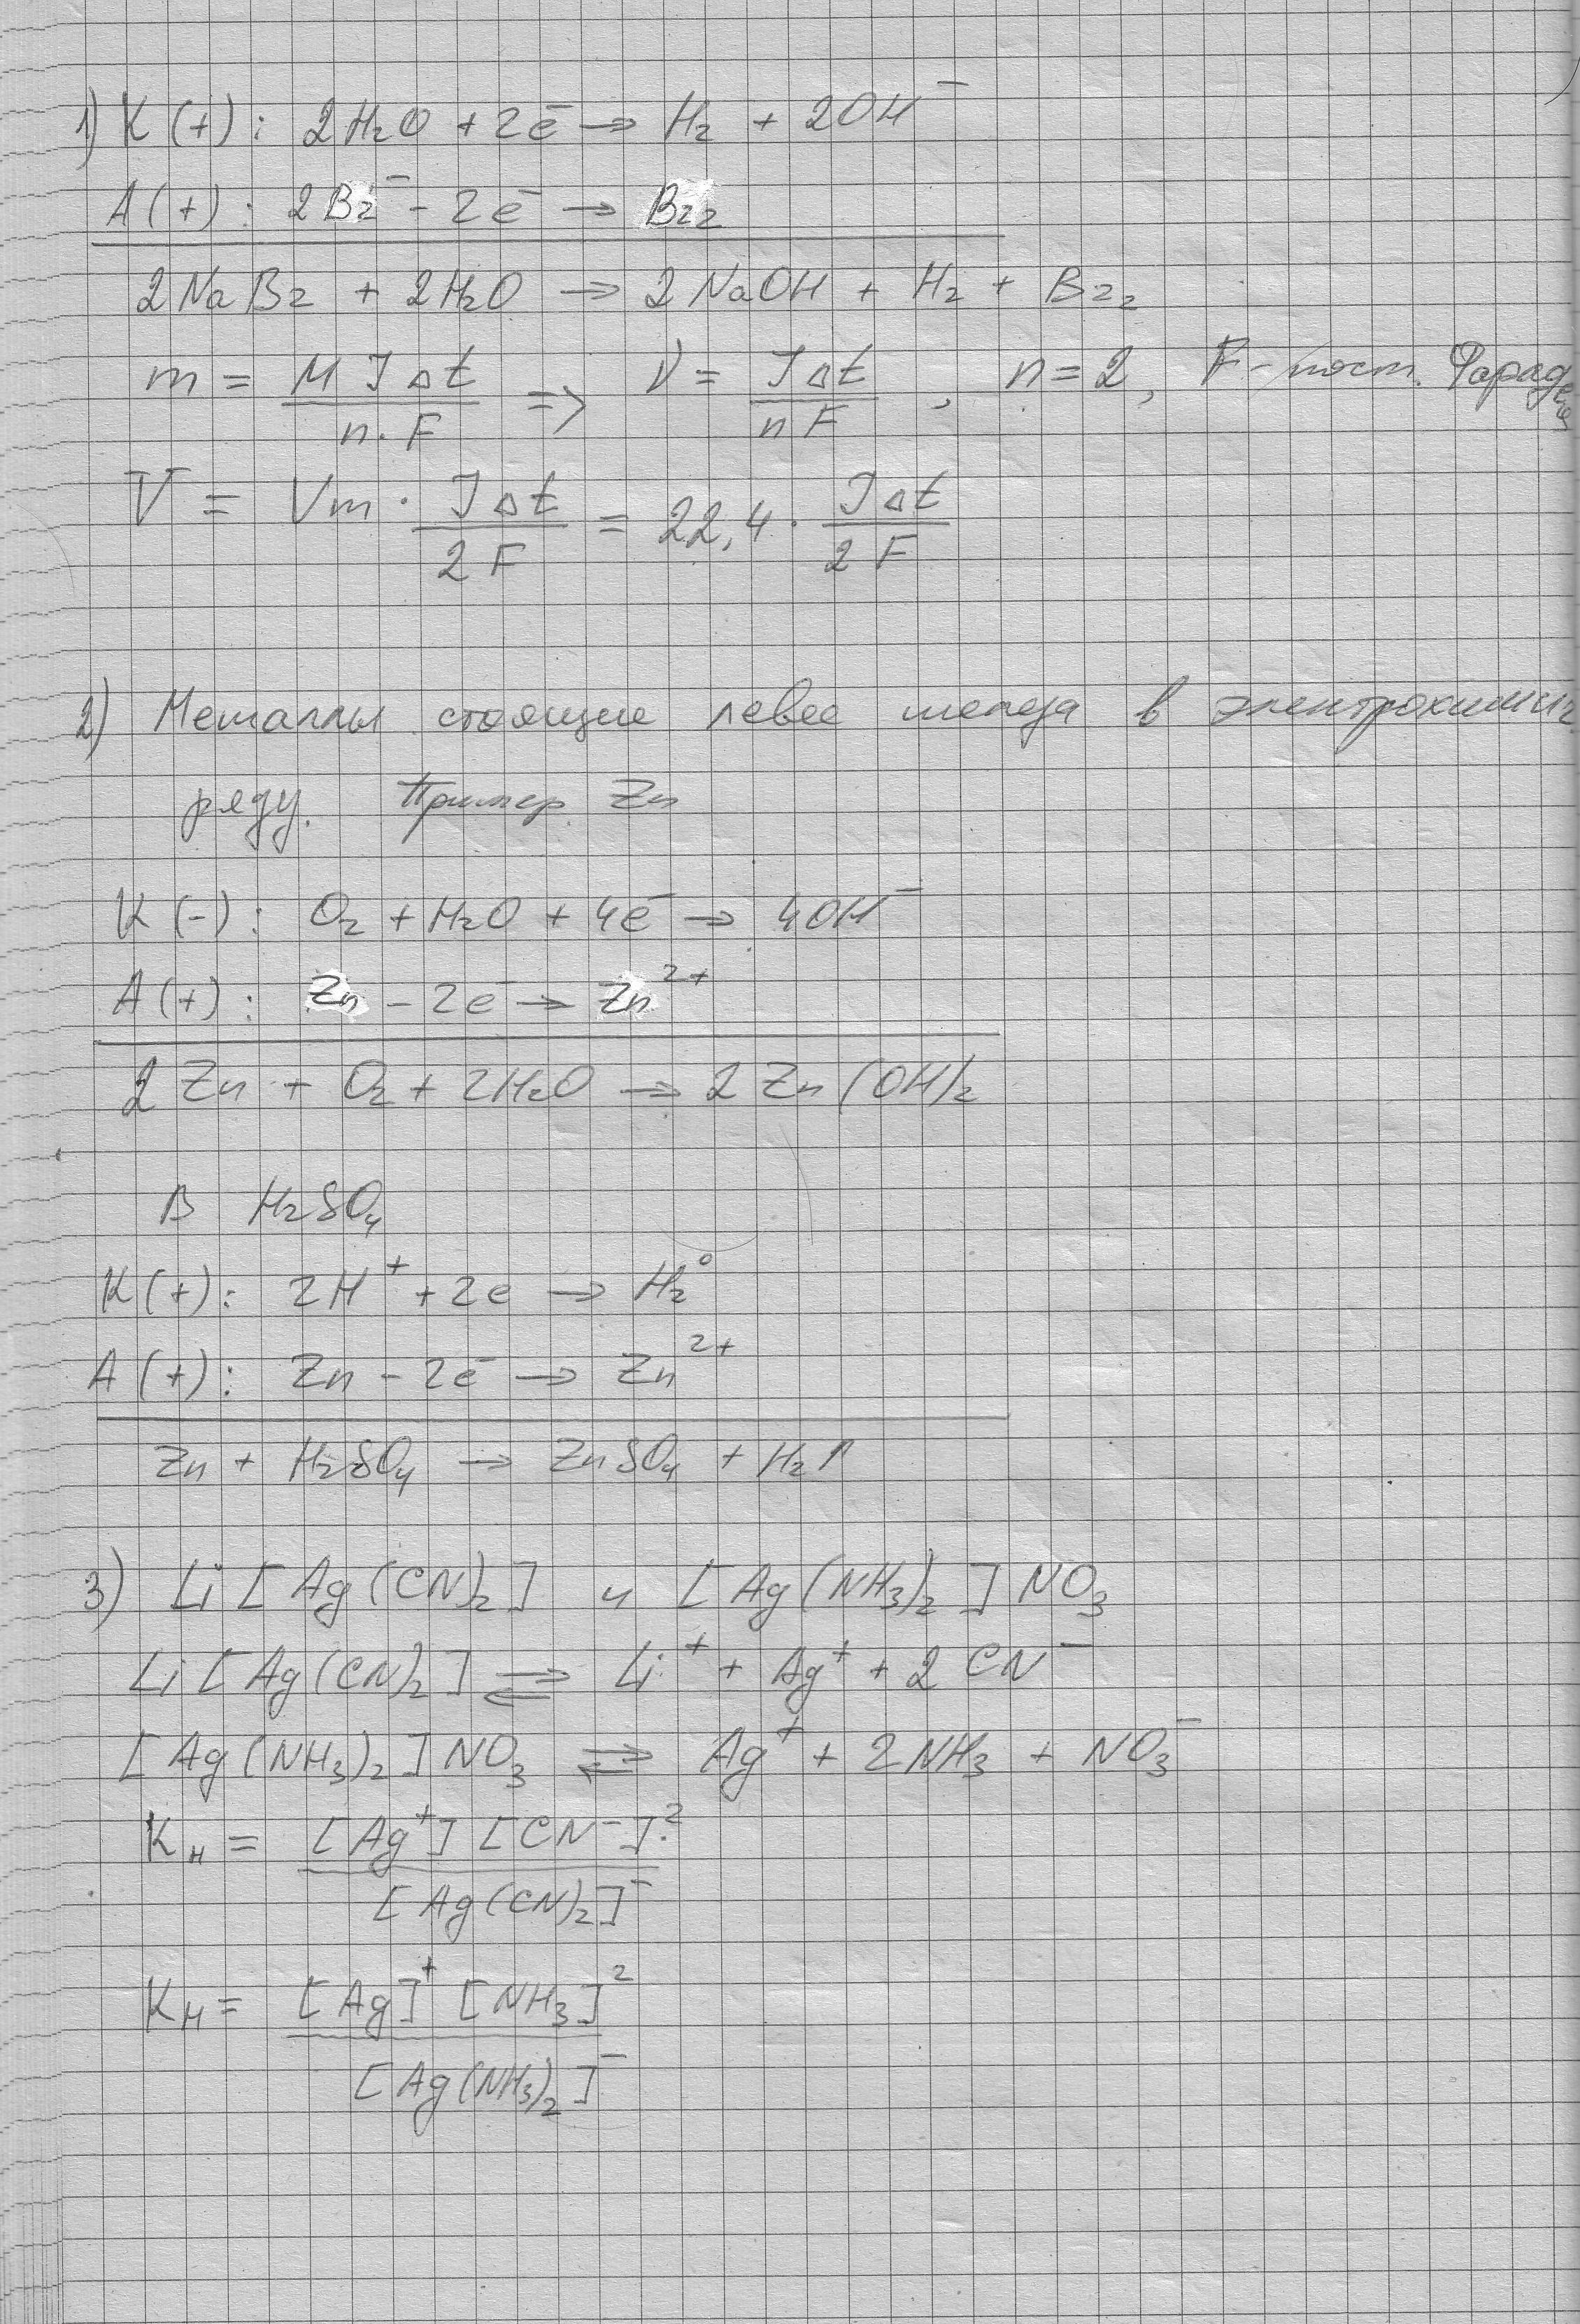 1) K (+): 2H₂O + 2ē → H₂ + 2OH⁻
A (+): 2Br⁻ - 2ē → Br₂
2NaBr + 2H₂O → 2NaOH + H₂ + Br₂
m = M I Δt / n · F => ν = I Δt / n F , n = 2, F - пост. Фарадея
V = Vm · I Δt / 2 F = 22,4 · I Δt / 2 F
2) Металлы стоящие левее железа в электрохимич.
ряду. Пример. Zn
K (-): O₂ + H₂O + 4ē → 4OH⁻
A (+): Zn - 2ē → Zn²⁺
2 Zn + O₂ + 2H₂O → 2 Zn(OH)₂
В H₂SO₄
K (+): 2H⁺ + 2e → H₂⁰
A (+): Zn - 2ē → Zn²⁺
Zn + H₂SO₄ → ZnSO₄ + H₂↑
3) Li[Ag(CN)₂] и [Ag(NH₃)₂]NO₃
Li[Ag(CN)₂] ⇌ Li⁺ + Ag⁺ + 2CN⁻
[Ag(NH₃)₂]NO₃ ⇌ Ag⁺ + 2NH₃ + NO₃⁻
Kн = [Ag⁺][CN⁻]² / [Ag(CN)₂]⁻
Kн = [Ag]⁺[NH₃]² / [Ag(NH₃)₂]⁻